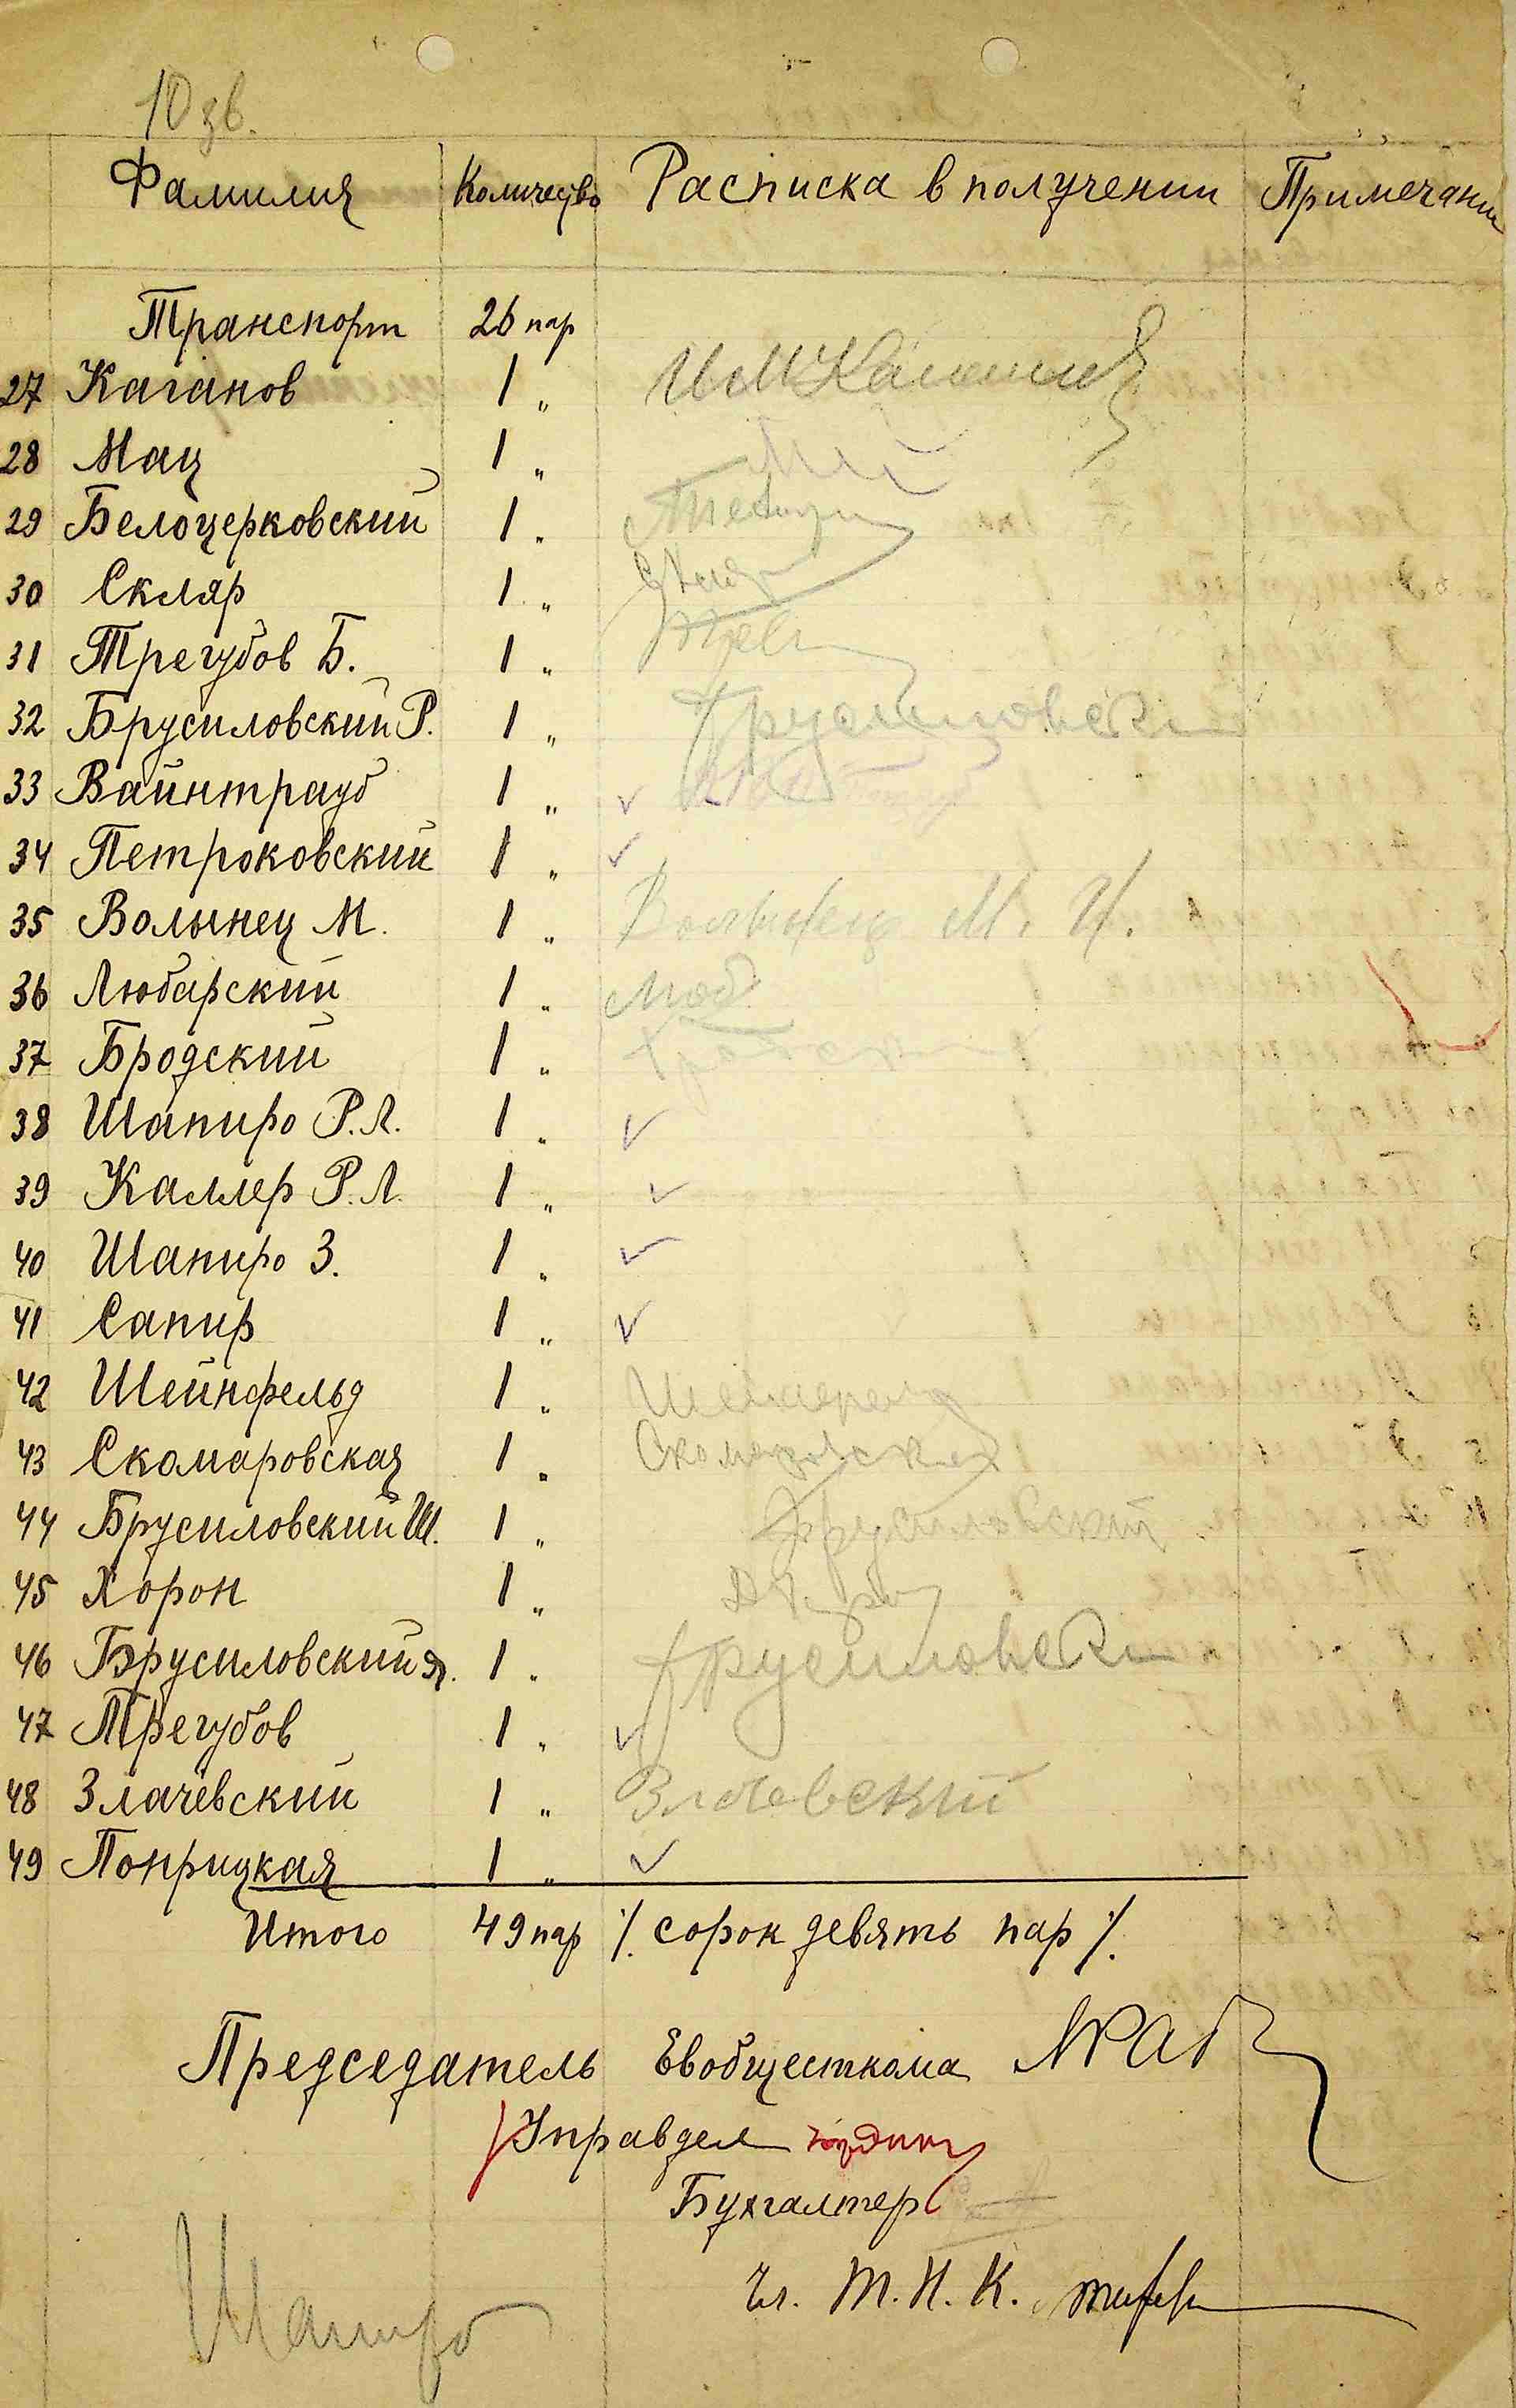 10 зв.
Фамилия Количество Расписка в получении Примечани
Транспорт 26 пар
27 Каганов 1 "
28 Мац 1 "
29 Белоцерковский 1 "
30 Скляр 1 "
31 Трегубов Б. 1 "
32 Брусиловский Р. 1 "
33 Вайнтрауб 1 " ✓
34 Петроковский 1 " ✓
35 Волынец М. 1 " Волынец М. И.
36 Любарский 1 " Люб
37 Бродский 1 "
38 Шапиро Р.Л. 1 " ✓
39 Каллер Р.Л. 1 " ✓
40 Шапиро З. 1 " ✓
41 Сапир 1 " ✓
42 Шейнфельд 1 "
43 Скомаровская 1 " Скомаровская
44 Брусиловский Ш. 1 " Брусиловский
45 Хорон 1 "
46 Брусиловский Я. 1 " Брусиловски
47 Трегубов 1 " ✓
48 Злачевский 1 " Злочевский
49 Понрицкая 1 " ✓
Итого 49 пар ·/. сорок девять пар ·/.
Председатель Евобщесткома
Управдел
Бухгалтер
Чл. Т.Н.К.
Шапиро